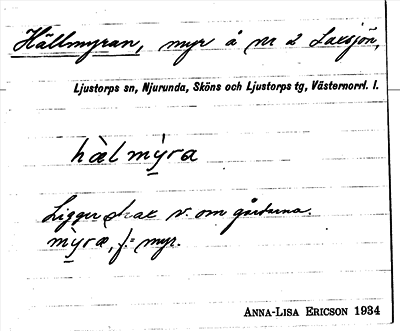 Hällmyran, myr å nr 2 Laxsjön,
Ljustorps sn, Njurunda, Sköns och Ljustorps tg, Västernorrl. l.
hæ̀l mỳra
Ligger strax v. om gårdarna.
mỳra, f. = myr.
ANNA-LISA ERICSON 1934